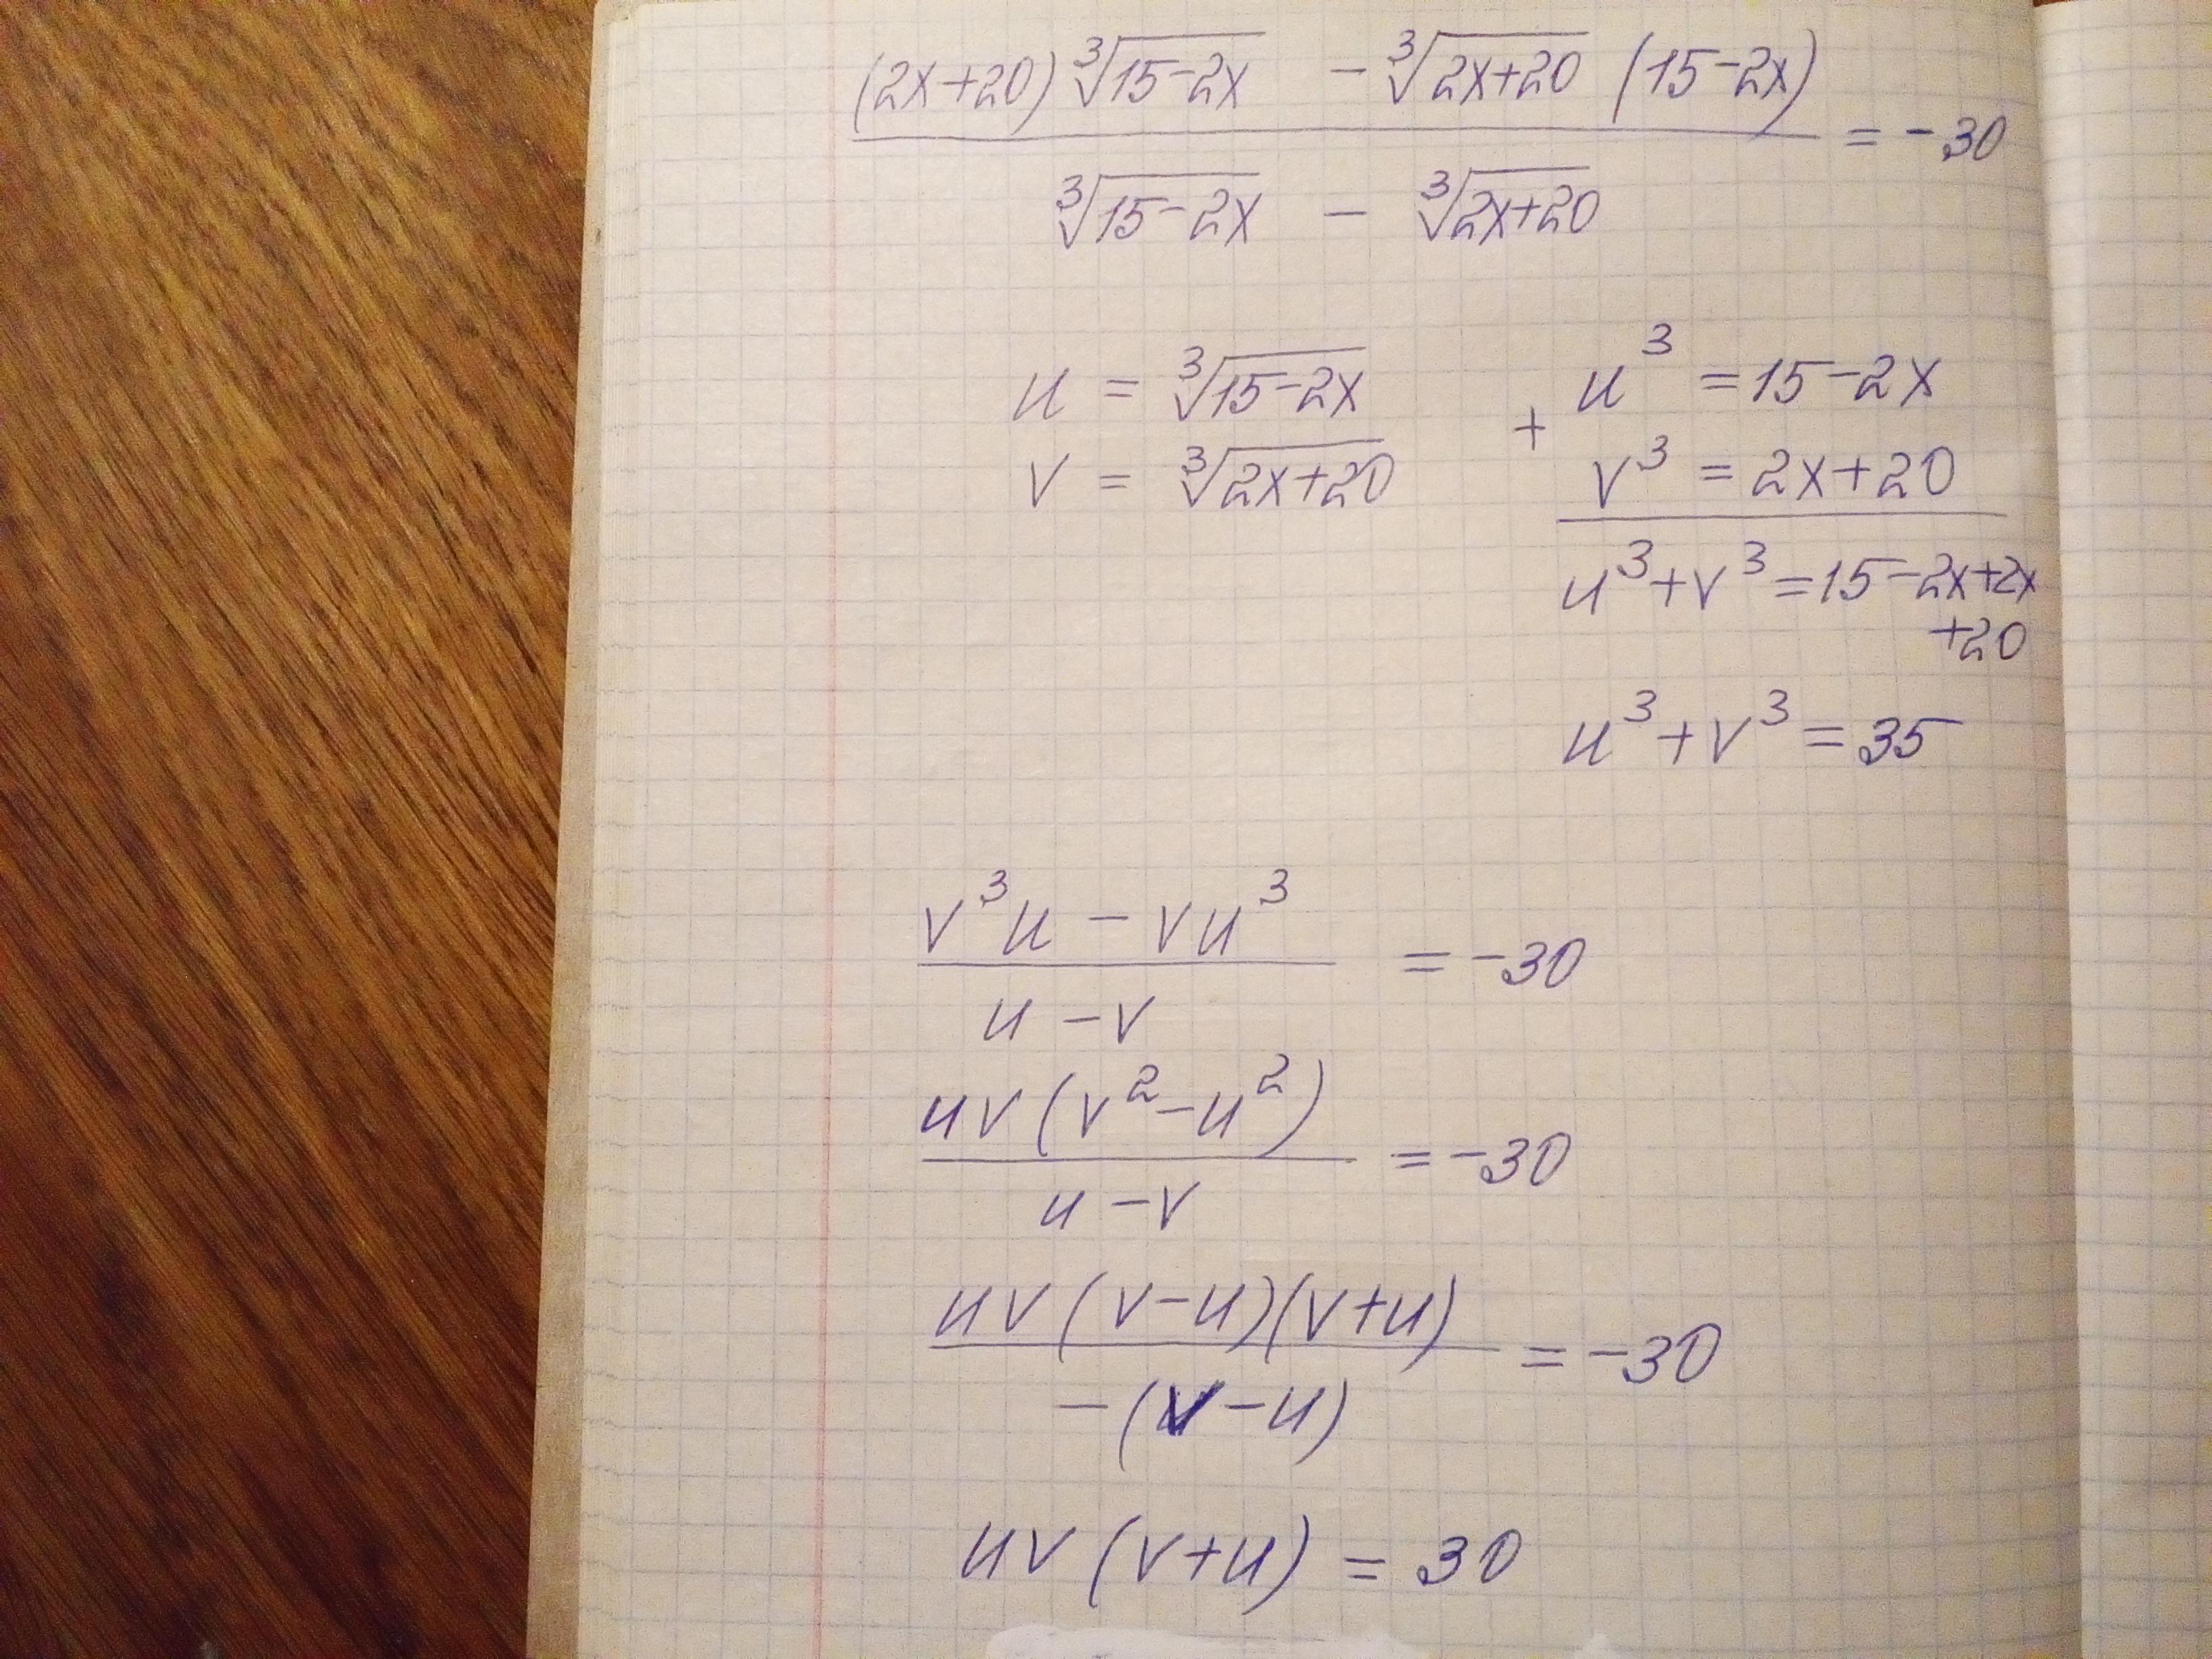 (2x+20)∛(15-2x) - ∛(2x+20) (15-2x) / ∛(15-2x) - ∛(2x+20) = -30
u = ∛(15-2x)
v = ∛(2x+20)
+ u³ = 15-2x
v³ = 2x+20
u³+v³ = 15-2x+2x
+20
u³+v³ = 35
v³u - vu³ / u-v = -30
uv(v²-u²) / u-v = -30
uv(v-u)(v+u) / -(v-u) = -30
uv(v+u) = 30